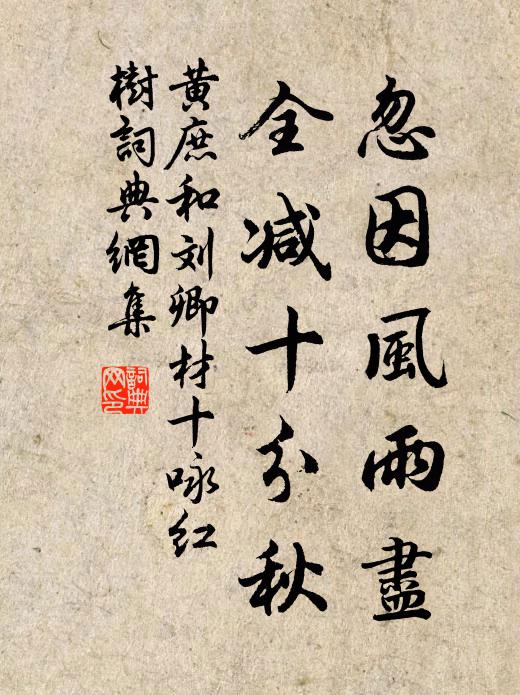 忽因風雨盡
全减十分秋
黄庶和刘卿材十咏红
樹詞典網集
詞典
网印